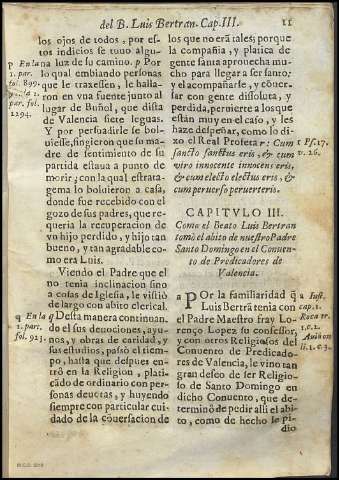 del B. Luis Bertran. Cap. III. 11
los ojos de todos, por es-
tos indicios se tuuo algu-
na luz de su camino. p Por
lo qual embiando personas
que le traxessen, le halla-
ron en vna fuente junto al
lugar de Buñol, que dista
de Valencia siete leguas.
Y por persuadirle se bol-
uiesse, fingieron que su ma-
dre de sentimiento de su
partida estaua a punto de
morir, con la qual estrata-
gema lo boluieron a casa,
donde fue recebido con el
gozo de sus padres, que re-
queria la recuperacion de
vn hijo perdido, y hijo tan
bueno, y tan agradable co-
mo era Luis.
Viendo el Padre que el
no tenia inclinacion sino
a cosas de Iglesia, le vistiò
de largo con abito clerical.
q Desta manera continuan-
do el sus deuociones, ayu-
nos, y obras de caridad, y
sus estudios, passò el tiem-
po, hasta que despues en-
trò en la Religion, plati-
cãdo de ordinario con per-
sonas deuotas, y huyendo
siempre con particular cui-
dado de la conuersacion de
p En la
1. par.
fol. 899.
1. par. fol.
1294.
q En la
1. par.
fol. 923.
los que no erã tales; porque
la compañia, y platica de
gente santa aprouecha mu-
cho para llegar a ser santo;
y el acompañarse, y conuer-
sar con gente dissoluta, y
perdida, peruierte a los que
estàn muy en el caso, y les
haze despeñar, como lo di-
xo el Real Profeta r: Cum
sancto sanctus eris, & cum
viro innocente innocens eris,
& cum electo electus eris, &
cum peruerso peruerteris.
r Ps. 17.
v. 26.
CAPITVLO III.
Como el Beato Luis Bertran
tomò el abito de nuestro Padre
Santo Domingo en el Conuen-
to de Predicadores de
Valencia.
a POr la familiaridad q̃
Luis Bertrã tenia con
el Padre Maestro fray Lo-
renço Lopez su confessor,
y con otros Religiosos del
Conuento de Predicado-
res de Valencia, le vino tan
gran desseo de ser Religio-
so de Santo Domingo en
dicho Conuento, que de-
terminò de pedir alli el abi-
to, como de hecho le pi-
dio
a Iust.
cap. 1.
Roca tr.
1. c. 2.
Auiñon
li. 1. c. 3.